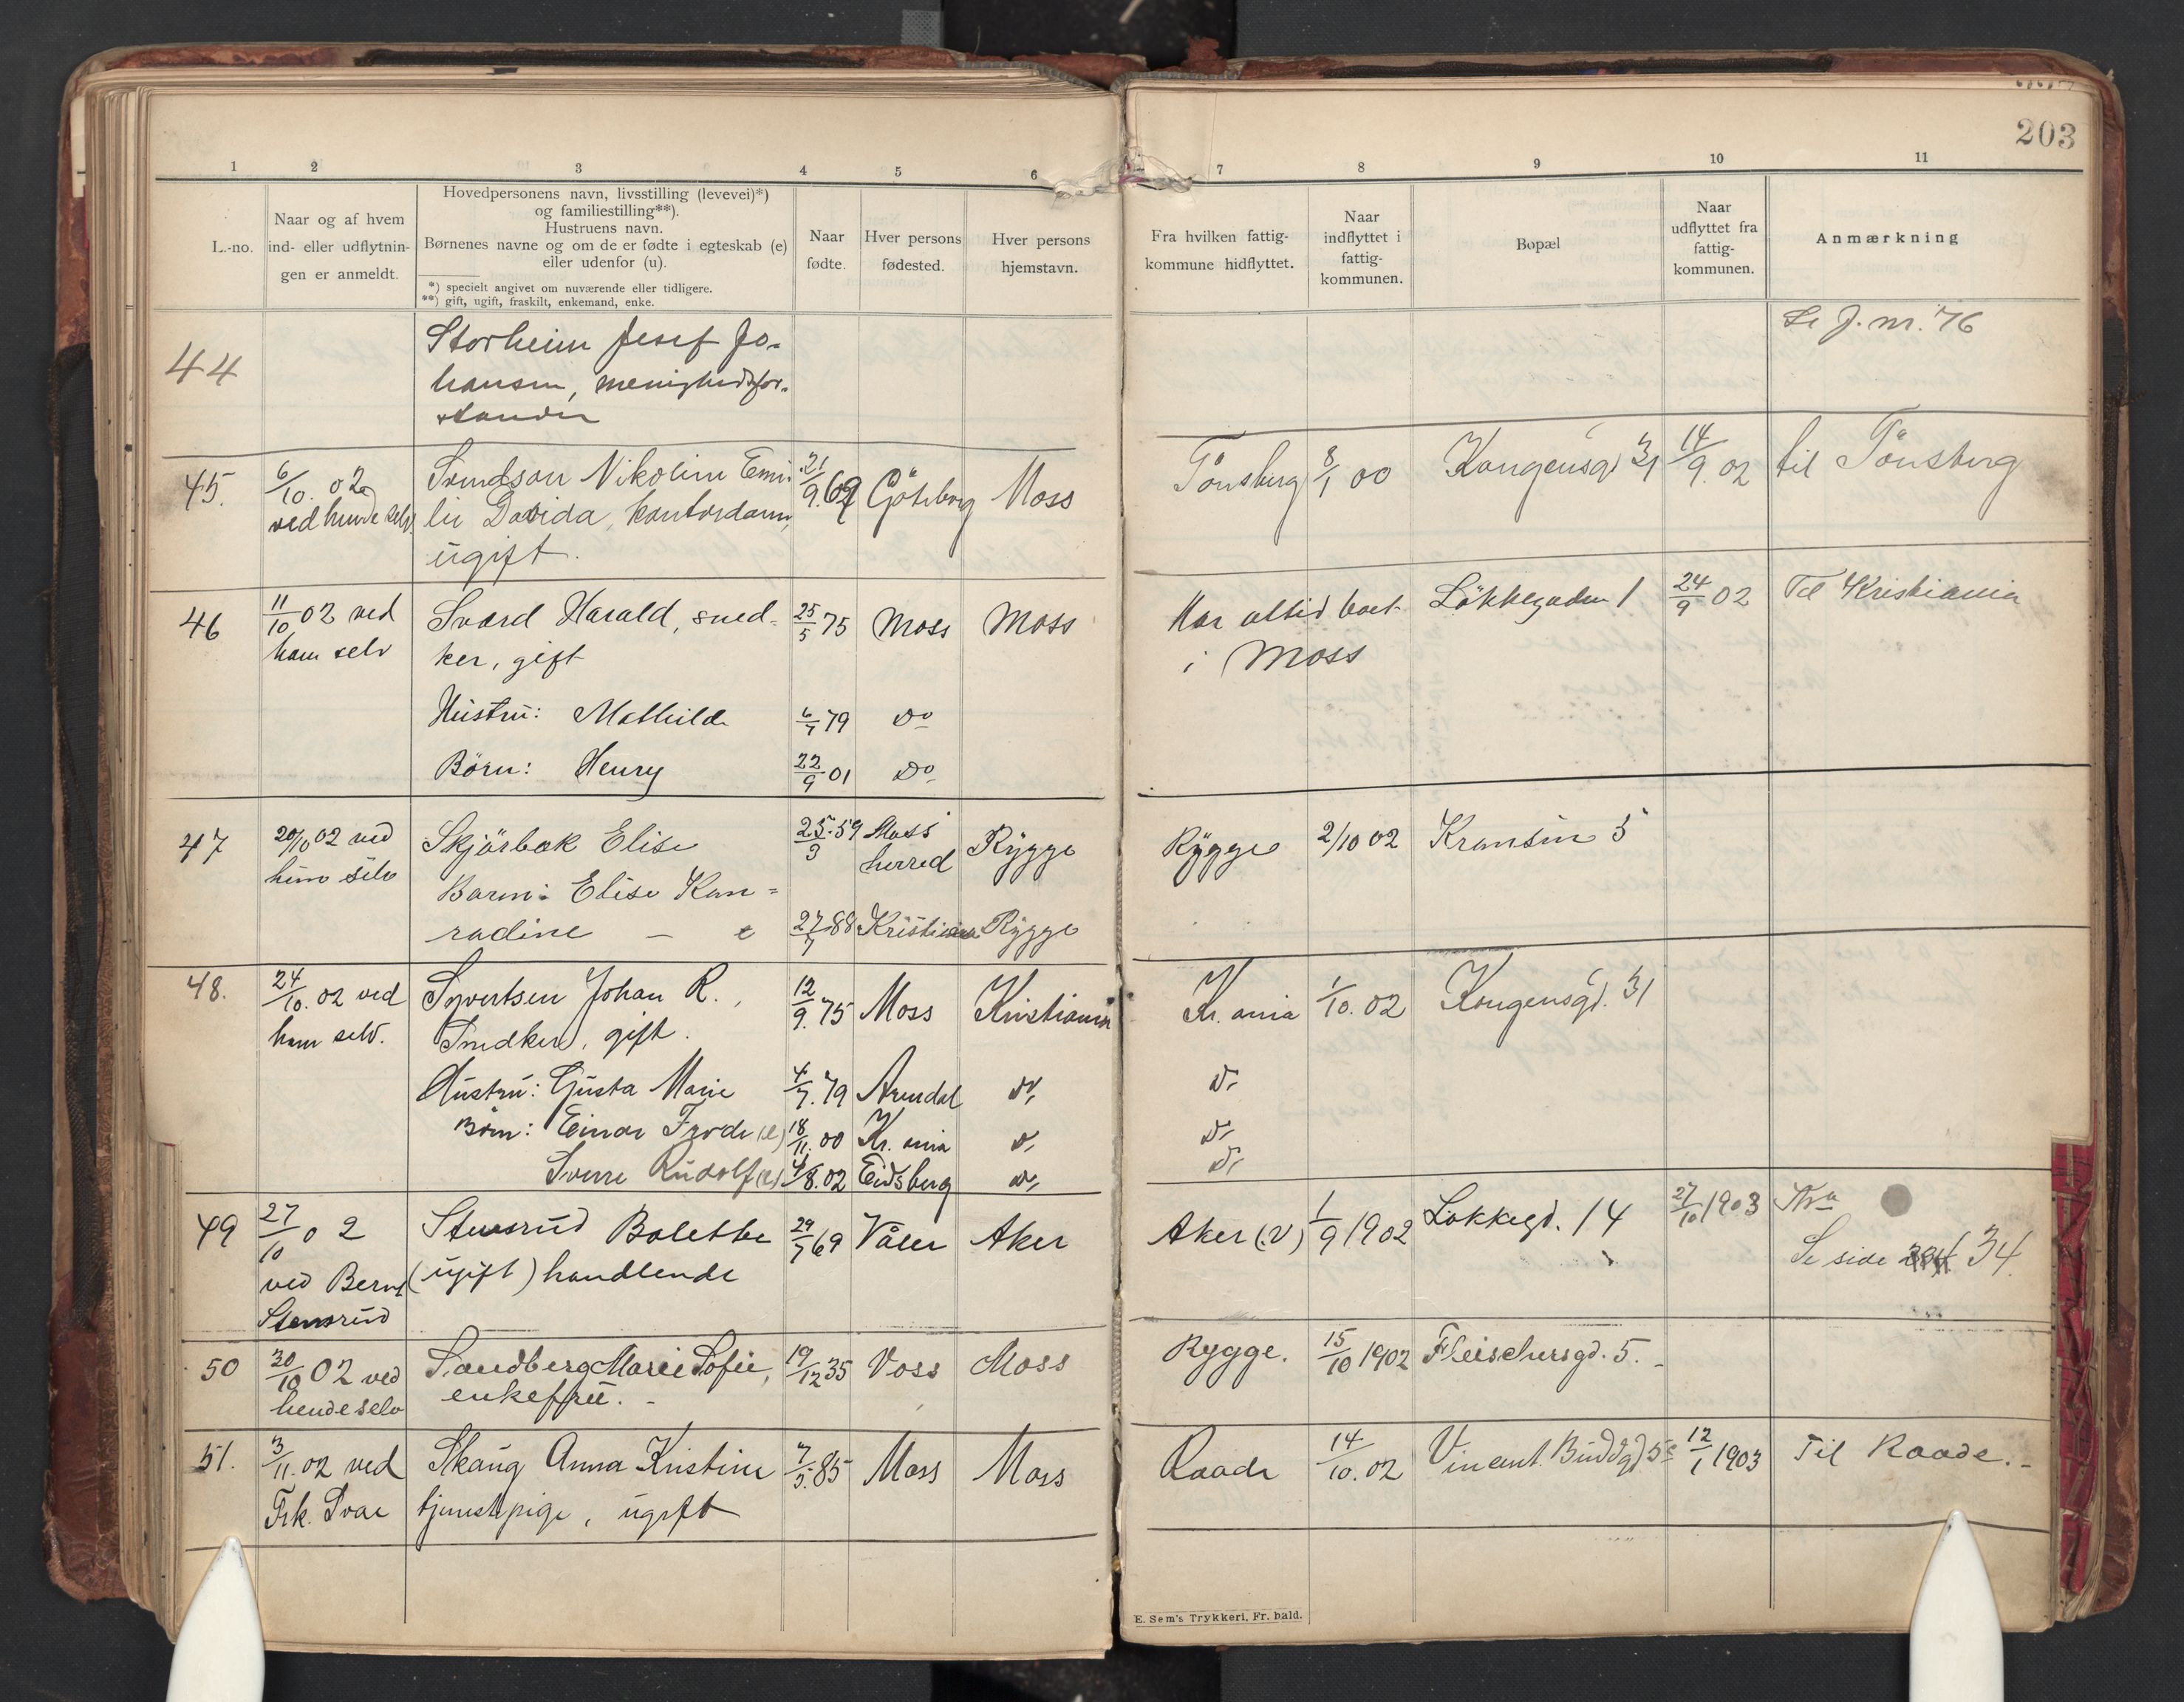 203
1 2 3 4 5 6 7 8 9 10 11
L.-no.
Naar og af hvem
ind- eller udflytnin-
gen er anmeldt.
Hovedpersonens navn, livsstilling (levevei)*)
og familiestilling**).
Hustruens navn.
Børnenes navne og om de er fødte i egteskab (e)
eller udenfor (u).
*) specielt angivet om nuværende eller tidligere.
**) gift, ugift, fraskilt, enkemand, enke.
Naar
fødte.
Hver persons
fødested.
Hver persons
hjemstavn.
Fra hvilken fattig-
kommune hidflyttet.
Naar
indflyttet i
fattig-
kommunen.
Bopæl
Naar
udflyttet fra
fattig-
kommunen.
Anmærkning
44 Storheim Josef Jo- Se J. nr. 76
hansen, menighedsfor-
stander
45. 6/10. 02 Svendsen Nikoline Emi- 21/9.69 Göteborg Moss Tønsberg 8/1 00 Kongensgd 31 14/9.02 til Tønsberg
ved hende selv. lie Davida, kontordame,
ugift.
46 11/10 02 ved Sværd Harald, sned- 25/5 75 Moss Moss Har altid boet Løkkegaden 1 24/9 02 Til Kristiania
ham selv ker, gift i Moss
Hustru: Mathilde 6/7 79 Do
Børn: Henry 22/9 01 Do
47 20/10 02 ved Skjørbæk Elise 25/3 59 Moss Rygge Rygge 2/10 02 Kransen 5
selv herred
Barn: Elise Kon-
radine — e 27/7 88 Kristiania Rygge
48. 24/10. 02 ved Syvertsen Johan R., 12/9. 75 Moss Kristiania Kr. ania 1/10. 02 Kongensgd. 31
ham selv. Snedker, gift.
Hustru: Gusta Marie 4/7. 79 Arendal Do Do
Børn: Einar Frode (e) 18/11. 00 Kr. ania Do Do
Sverre Rudolf (e) 4/8. 02 Eidsberg Do Do
49 27/10 02 Stensrud Bolette 29/7 69 Våler Aker Aker (V) 1/9 1902 Løkkegd. 14 27/10 1903 Kra
ved Bernt (ugift) handlende Se side 434.
Stensrud
50 30/10 02 ved Sandberg Marie Sofie, 19/12 35 Voss Moss Rygge. 15/10 1902 Fleischersgd. 5.-
hende selv enkefru.-
51. 3/11. 02 ved Skaug Anna Kristine 7/5. 85 Moss Moss Raade 14/10. 02 Vincent Buddgd 5 12/1 1903 Til Raade.-
Frk. tjenestpige, ugift
E. Sem's Trykkeri, Fr. hald.